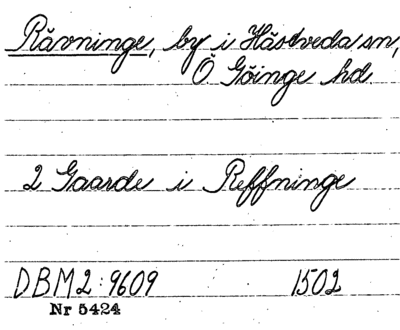 Rävninge, by i Hästveda sn,
Ö. Göinge hd.
2 Gaarde i Reffninge
DBM2:9609 1502
Nr 5424